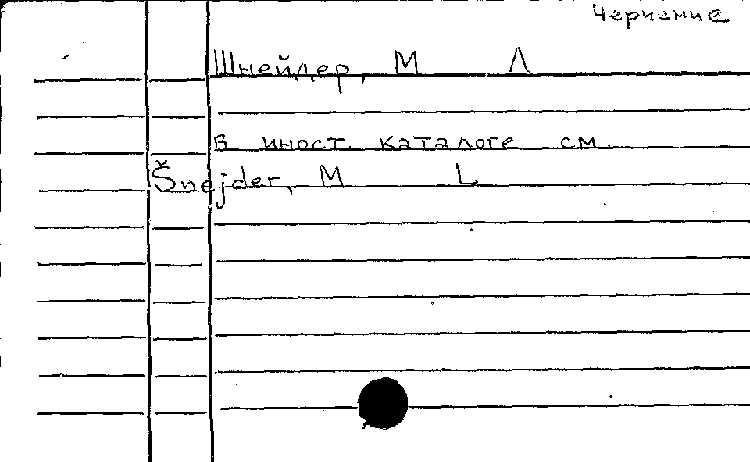 Шнейдер, М Л
В иност. каталоге см
Šnejder, M L